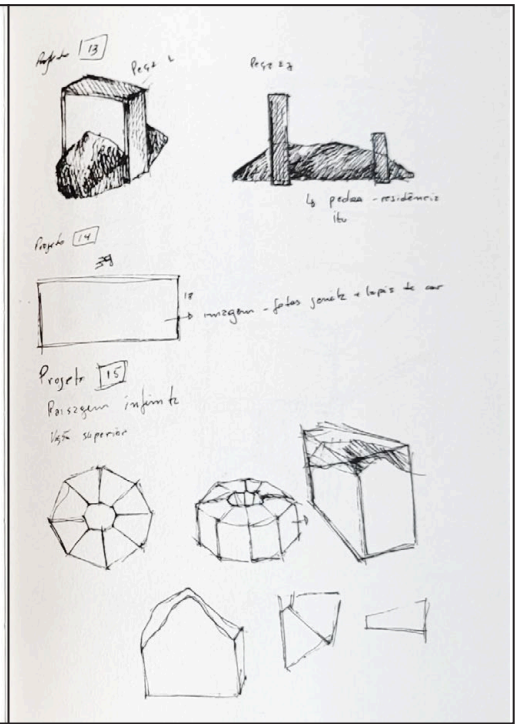 Projeto 13
Peça 1
Peça 2
↳ pedra - residência
itu
Projeto 14
39
18
→ imagem - fotos + lapis de cor
Projeto 15
Paisagem infinita
Vista superior